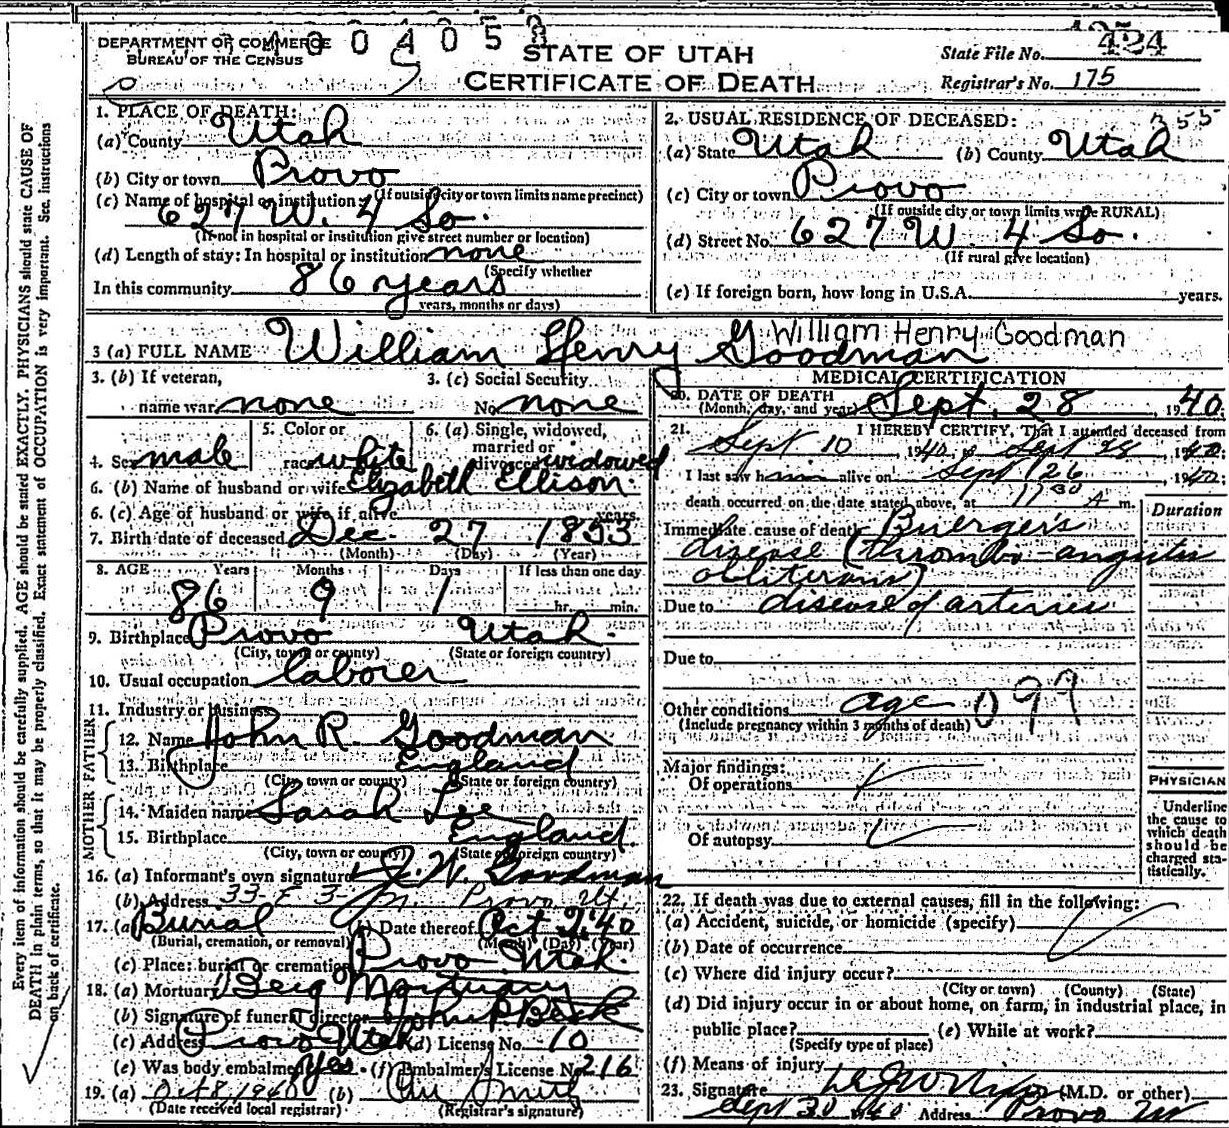 DEPARTMENT OF COMMERCE
BUREAU OF THE CENSUS
STATE OF UTAH
CERTIFICATE OF DEATH
State File No. 424
Registrar's No. 175
1. PLACE OF DEATH:
(a) County Utah
(b) City or town Provo
(If outside city or town limits name precinct)
(c) Name of hospital or institution:
627 W. 4 So.
(If not in hospital or institution give street number or location)
(d) Length of stay: In hospital or institution none
(Specify whether
In this community 86 years
years, months or days)
2. USUAL RESIDENCE OF DECEASED:
(a) State Utah (b) County Utah
(c) City or town Provo
(If outside city or town limits write RURAL)
(d) Street No. 627 W. 4 So.
(If rural give location)
(e) If foreign born, how long in U.S.A. years.
3 (a) FULL NAME William Henry Goodman
William Henry Goodman
3. (b) If veteran,
name war none
3. (c) Social Security
No. none
4. Sex male
5. Color or
race white
6. (a) Single, widowed,
married or
divorced widowed
6. (b) Name of husband or wife Elizabeth Ellison
6. (c) Age of husband or wife if alive years
7. Birth date of deceased Dec. 27 1853
(Month) (Day) (Year)
8. AGE Years Months Days If less than one day
86 9 1 hr. min.
9. Birthplace Provo Utah.
(City, town or county) (State or foreign country)
10. Usual occupation laborer
11. Industry or business
FATHER
12. Name John R. Goodman
13. Birthplace England
(City, town or county) (State or foreign country)
MOTHER
14. Maiden name Sarah Lee
15. Birthplace England.
(City, town or county) (State or foreign country)
16. (a) Informant's own signature J. W. Goodman
(b) Address Provo Ut.
17. (a) Burial (b) Date thereof Oct 2, 40
(Burial, cremation, or removal) (Month) (Day) (Year)
(c) Place: burial or cremation Provo Utah.
18. (a) Mortuary Berg Mortuary
(b) Signature of funeral director
(c) Address Provo Utah (d) License No. 10
(e) Was body embalmed yes. (f) Embalmer's License No. 216
19. (a) Oct 8, 1940 (b) Smith
(Date received local registrar) (Registrar's signature)
MEDICAL CERTIFICATION
20. DATE OF DEATH
(Month, day, and year) Sept. 28, 1940.
21. I HEREBY CERTIFY, That I attended deceased from
Sept 10, 1940, to Sept 28, 1940;
I last saw him alive on Sept 26, 1940;
death occurred on the date stated above, at A m.
Duration
Immediate cause of death Buerger's
disease (thrombo-angitis
obliterans)
Due to disease of arteries
Due to
Other conditions age 099
(Include pregnancy within 3 months of death)
Major findings:
Of operations
Of autopsy
PHYSICIAN
Underline
the cause to
which death
should be
charged sta-
tistically.
22. If death was due to external causes, fill in the following:
(a) Accident, suicide, or homicide (specify)
(b) Date of occurrence
(c) Where did injury occur?
(City or town) (County) (State)
(d) Did injury occur in or about home, on farm, in industrial place, in
public place? (e) While at work?
(Specify type of place)
(f) Means of injury
23. Signature (M.D. or other)
Sept 30 1940 Address Provo Ut
Every item of information should be carefully supplied. AGE should be stated EXACTLY. PHYSICIANS should state CAUSE OF
DEATH in plain terms, so that it may be properly classified. Exact statement of OCCUPATION is very important. See instructions
on back of certificate.